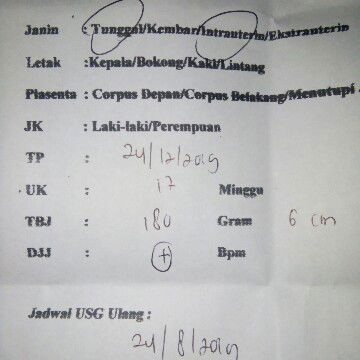 Janin : Tunggal/Kembar/Intrauterin/Ekstrauterin
Letak : Kepala/Bokong/Kaki/Lintang
Plasenta : Corpus Depan/Corpus Belakang/Menutupi
JK : Laki-laki/Perempuan
TP : 24/12/2019
UK : 17 Minggu
TBJ : 180 Gram 6 cm
DJJ : + Bpm
Jadwal USG Ulang :
24/8/2019